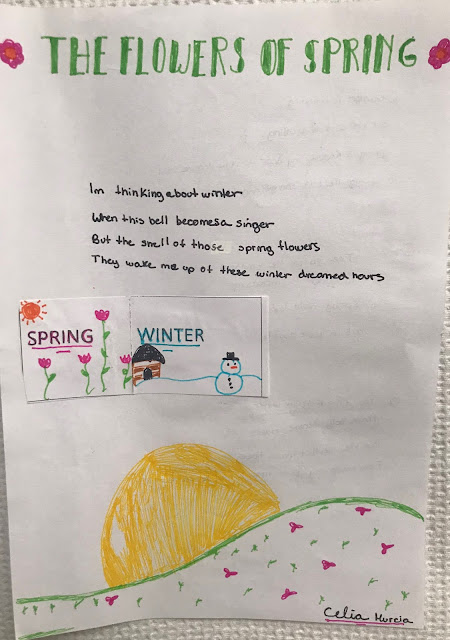 THE FLOWERS OF SPRING
Im thinking about winter
When this bell becomes a singer
But the smell of those spring flowers
They wake me up of these winter dreamed hours
SPRING WINTER
Celia Murcia